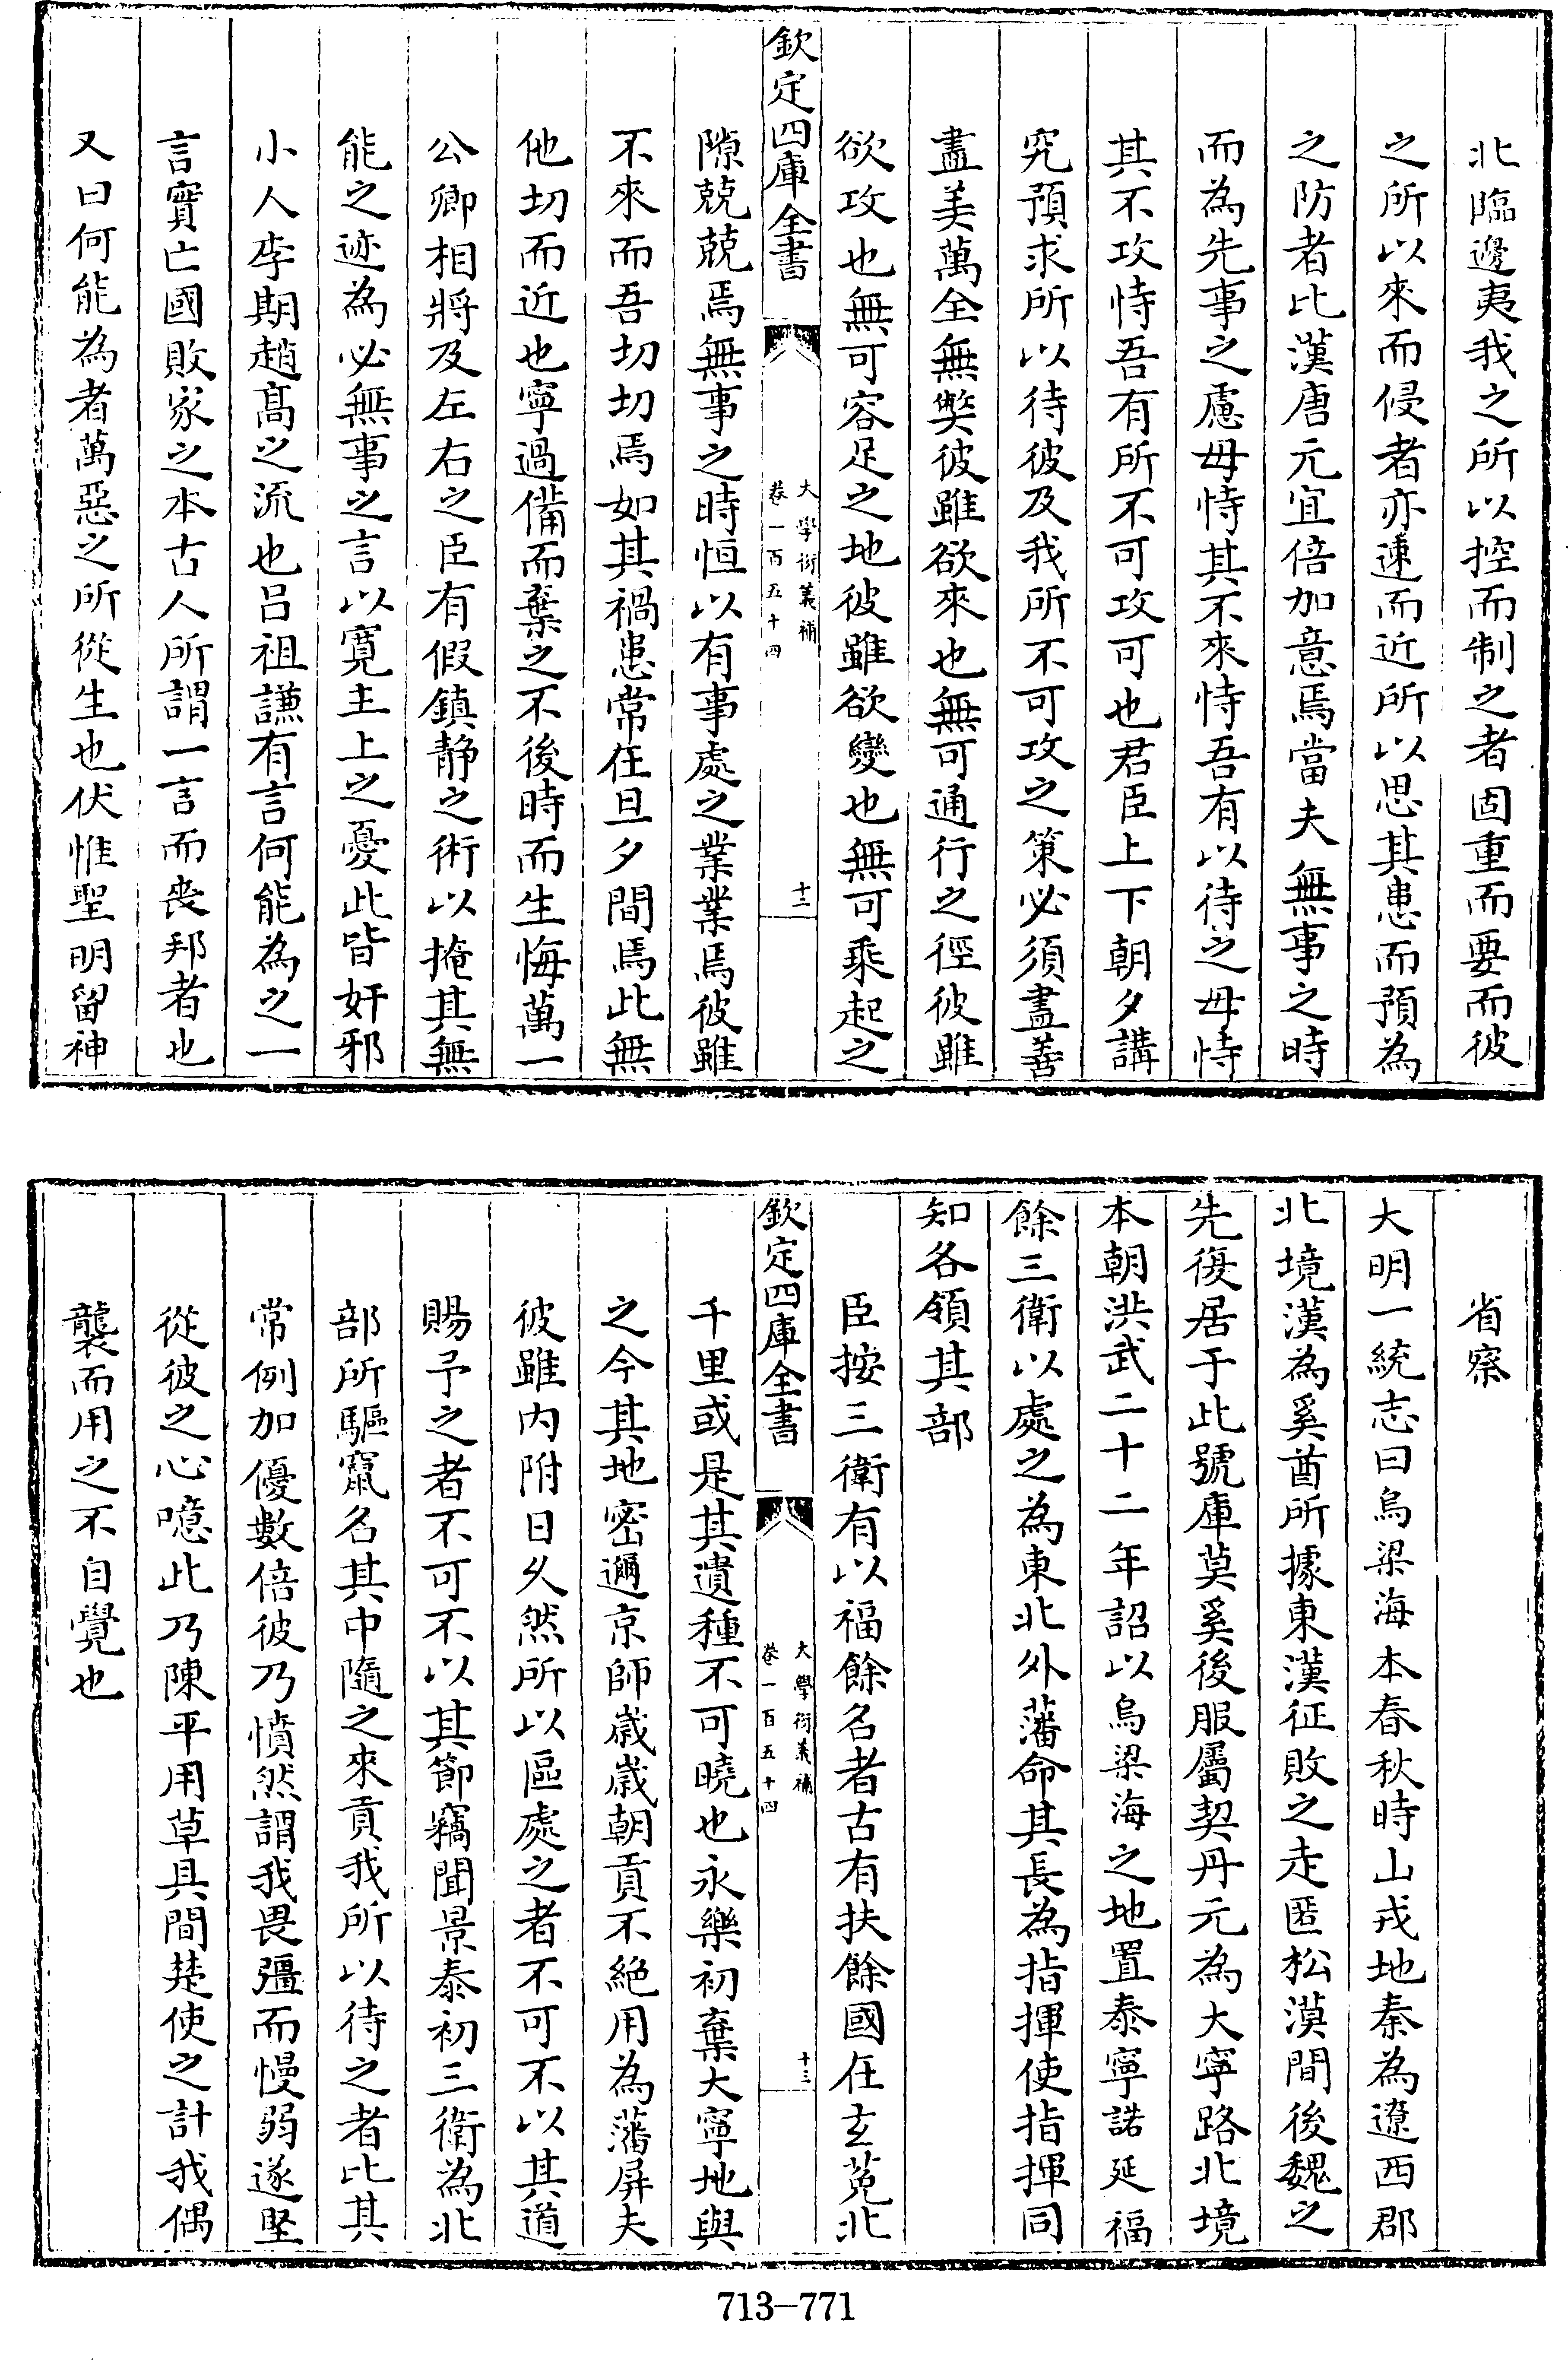 北臨邊夷我之所以控而制之者固重而要而彼
之所以來而侵者亦速而近所以思其患而預為
之防者比漢唐元宜倍加意焉當夫無事之時
而為先事之慮毋恃其不來恃吾有以待之毋恃
其不攻恃吾有所不可攻可也君臣上下朝夕講
究預求所以待彼及我所不可攻之策必須盡善
盡美萬全無弊彼雖欲來也無可通行之徑彼雖
欲攻也無可容足之地彼雖欲變也無可乘起之
欽定四庫全書
大學衍義補
卷一百五十四
十二
隙兢兢焉無事之時恒以有事處之業業焉彼雖
不來而吾切切焉如其禍患常在旦夕間焉此無
他切而近也寧過備而棄之不後時而生悔萬一
公卿相將及左右之臣有假鎮静之術以掩其無
能之迹為必無事之言以寛主上之憂此皆奸邪
小人李期趙髙之流也吕祖謙有言何能為之一
言實亡國敗家之本古人所謂一言而喪邦者也
又曰何能為者萬惡之所從生也伏惟聖明留神
省察
大明一統志曰烏梁海本春秋時山戎地秦為遼西郡
北境漢為奚酋所據東漢征敗之走匿松漠間後魏之
先復居于此號庫莫奚後服屬契丹元為大寧路北境
本朝洪武二十二年詔以烏梁海之地置泰寧諾延福
餘三衛以處之為東北外藩命其長為指揮使指揮同
知各領其部
臣按三衛有以福餘名者古有扶餘國在玄菟北
欽定四庫全書
大學衍義補
卷一百五十四
十三
千里或是其遺種不可曉也永樂初棄大寧地與
之今其地密邇京師歲歲朝貢不絶用為藩屏夫
彼雖内附日久然所以區處之者不可不以其道
賜予之者不可不以其節竊聞景泰初三衛為北
部所驅竄名其中隨之來貢我所以待之者比其
常例加優數倍彼乃憤然謂我畏彊而慢弱遂堅
從彼之心噫此乃陳平用草具間楚使之計我偶
襲而用之不自覺也
713-771